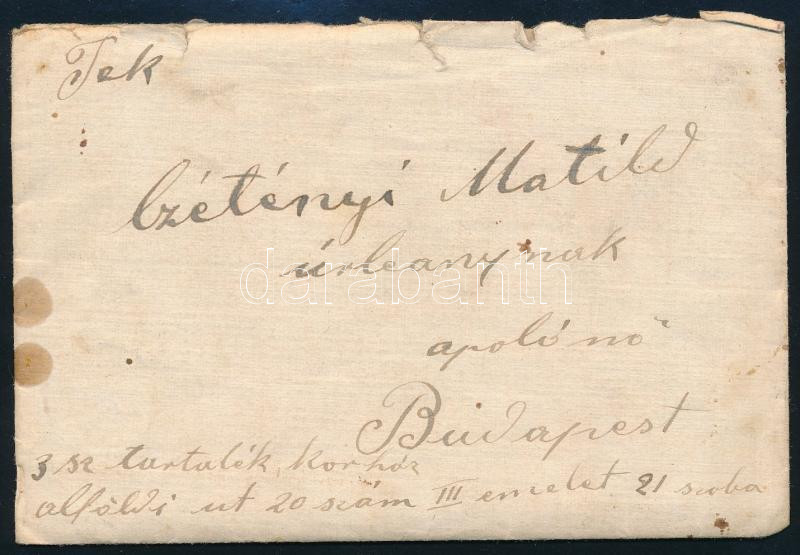 Tek
Czétényi Matild
úrleanynak
apoló nő
Budapest
3 sz tartalék korház
alföldi ut 20 szám III emelet 21 szoba
darabanth